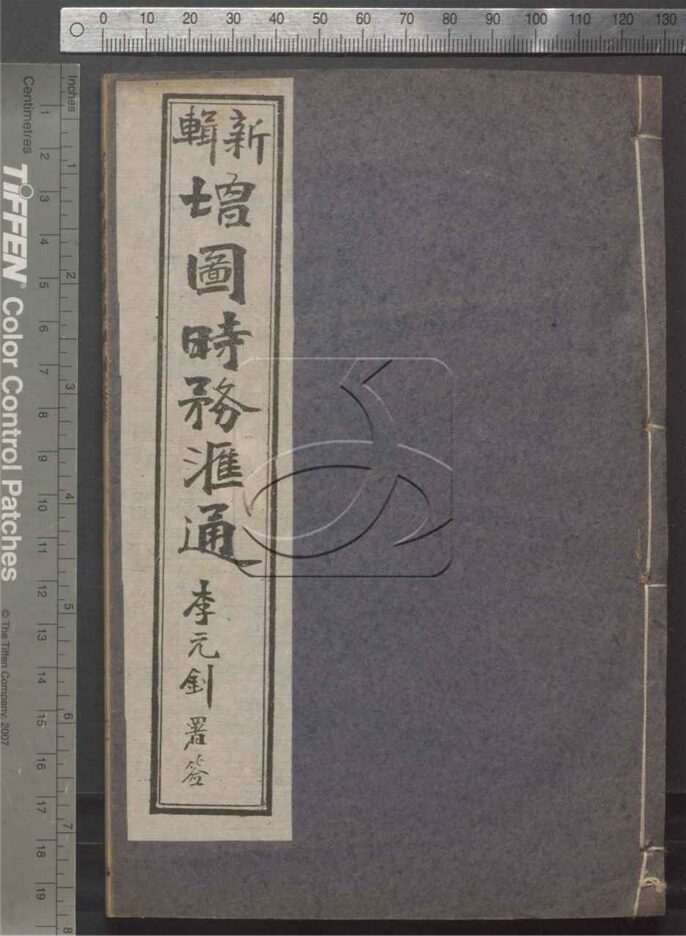 新輯
增圖時務滙通
李元釗署签
0 10 20 30 40 50 60 70 80 90 100 110 120 130
Inches
Centimetres
1 2 3 4 5 6 7 8
1 2 3 4 5 6 7 8 9 10 11 12 13 14 15 16 17 18 19
TIFFEN Color Control Patches
© The Tiffen Company, 2007